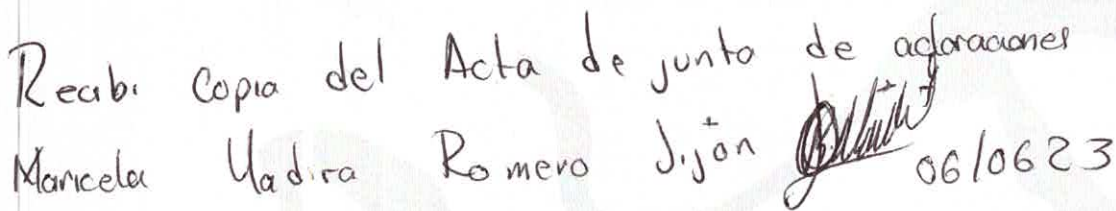 Recibi Copia del Acta de junta de aclaraciones
Maricela Yadira Romero Jijón 06/0623